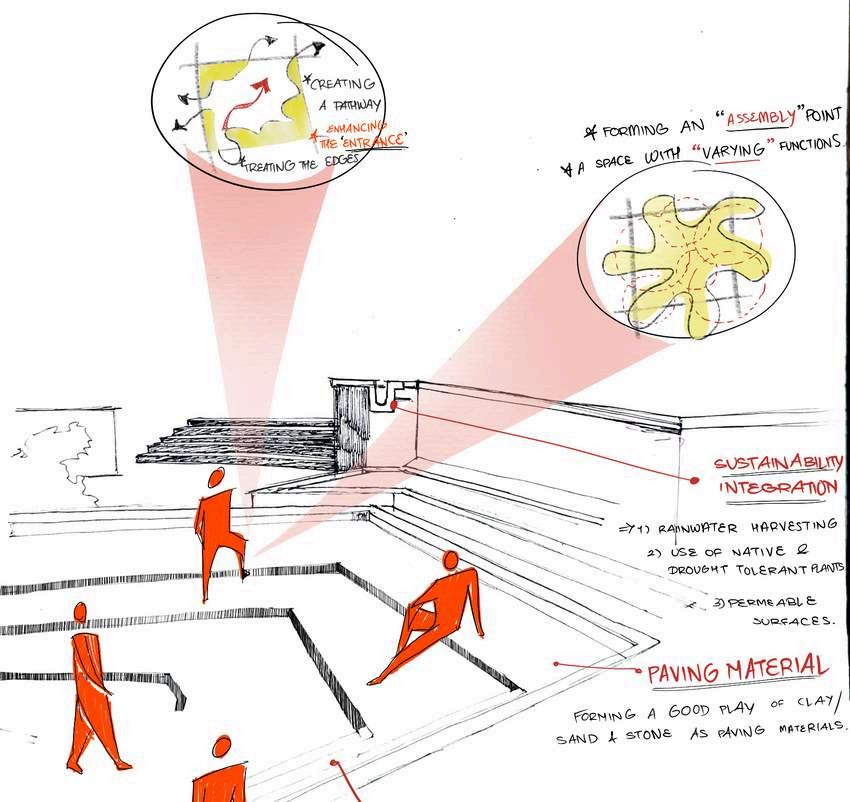 *CREATING
A PATHWAY
* ENHANCING
THE 'ENTRANCE'
*TREATING THE EDGES
* FORMING AN "ASSEMBLY" POINT
* A SPACE WITH "VARYING" FUNCTIONS.
SUSTAINABILITY
INTEGRATION
=> 1) RAINWATER HARVESTING
2) USE OF NATIVE &
DROUGHT TOLERANT PLANTS
3) PERMEABLE
SURFACES.
PAVING MATERIAL
FORMING A GOOD PLAY OF CLAY/
SAND & STONE AS PAVING MATERIALS.